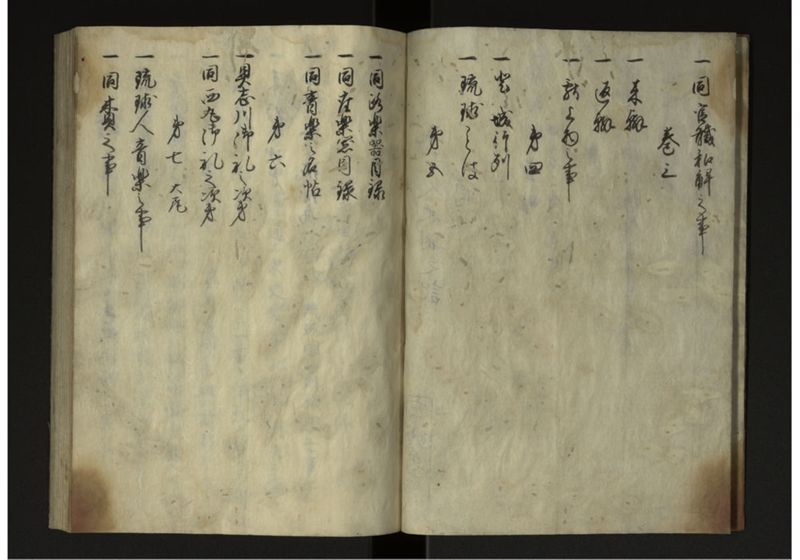 一同官職和解之事
巻三
一来翰
一返翰
一献上物之事
第四
一登城行列
一琉球うた
第五
一同路楽器目録
一同座楽器目録
一同音楽之名帖
第六
一具志川御礼之次第
一同西丸御礼之次第
第七 大尾
一琉球人音楽之事
一同賛之事